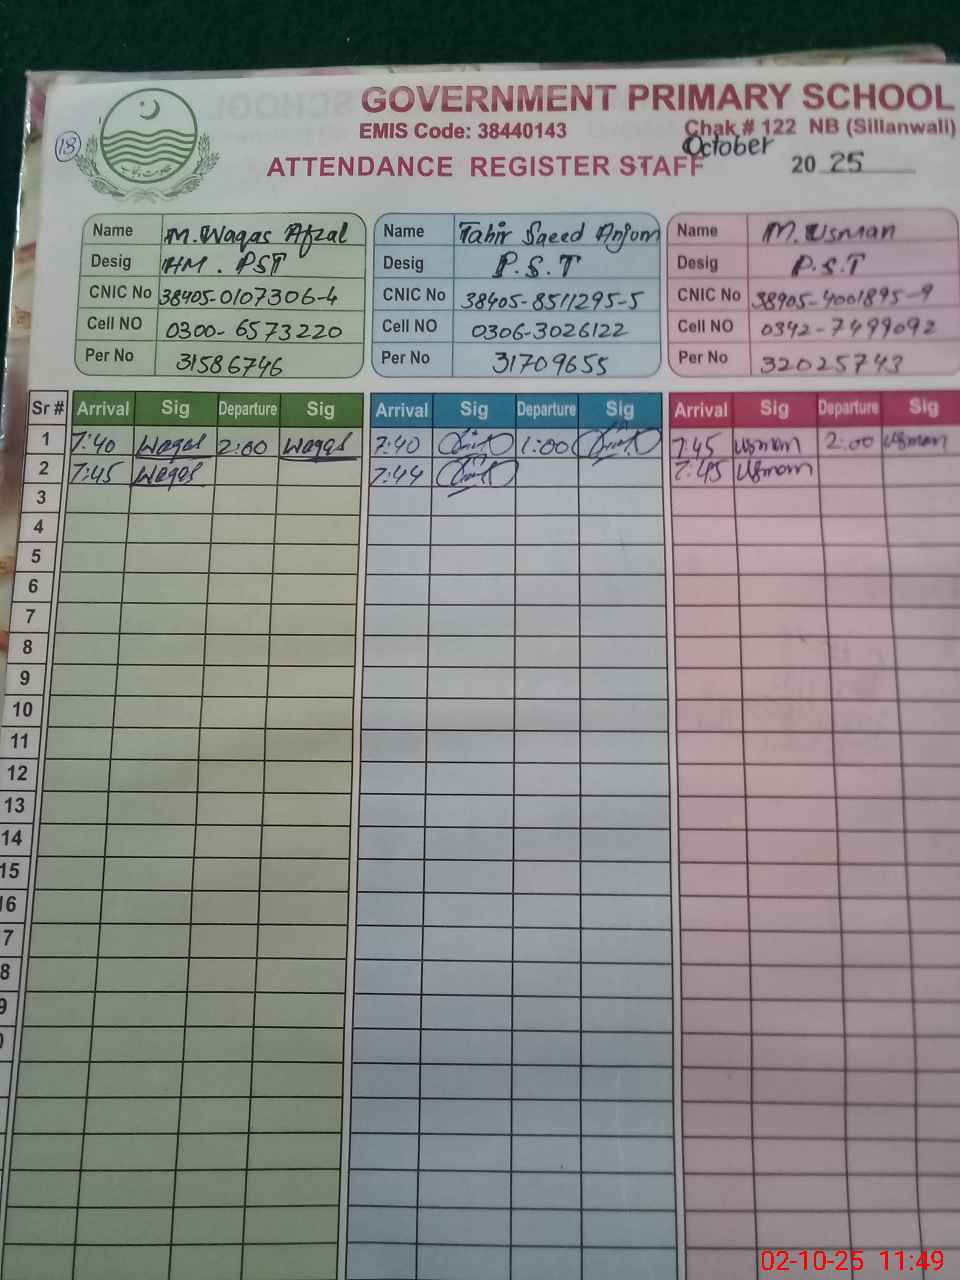 GOVERNMENT PRIMARY SCHOOL
EMIS Code: 38440143 Chak # 122 NB (Sillanwali)
18
October
ATTENDANCE REGISTER STAFF 2025
Name M.Waqas Afzal Name Tahir Saeed Anjum Name M.Usman
Desig HM. PST Desig P.S.T Desig P.S.T
CNIC No 38405-0107306-4 CNIC No 38405-8511295-5 CNIC No 38905-4001895-9
Cell NO 0300-6573220 Cell NO 0306-3026122 Cell NO 0342-7499092
Per No 31586746 Per No 31709655 Per No 32025743
Sr # Arrival Sig Departure Sig Arrival Sig Departure Sig Arrival Sig Departure Sig
1 7:40 Waqas 2:00 Waqas 7:40 1:00 7:45 Usman 2:00 Usman
2 7:45 Waqas 7:44 7:45 Usman
3
4
5
6
7
8
9
10
11
12
13
14
15
16
7
8
9
02-10-25 11:49